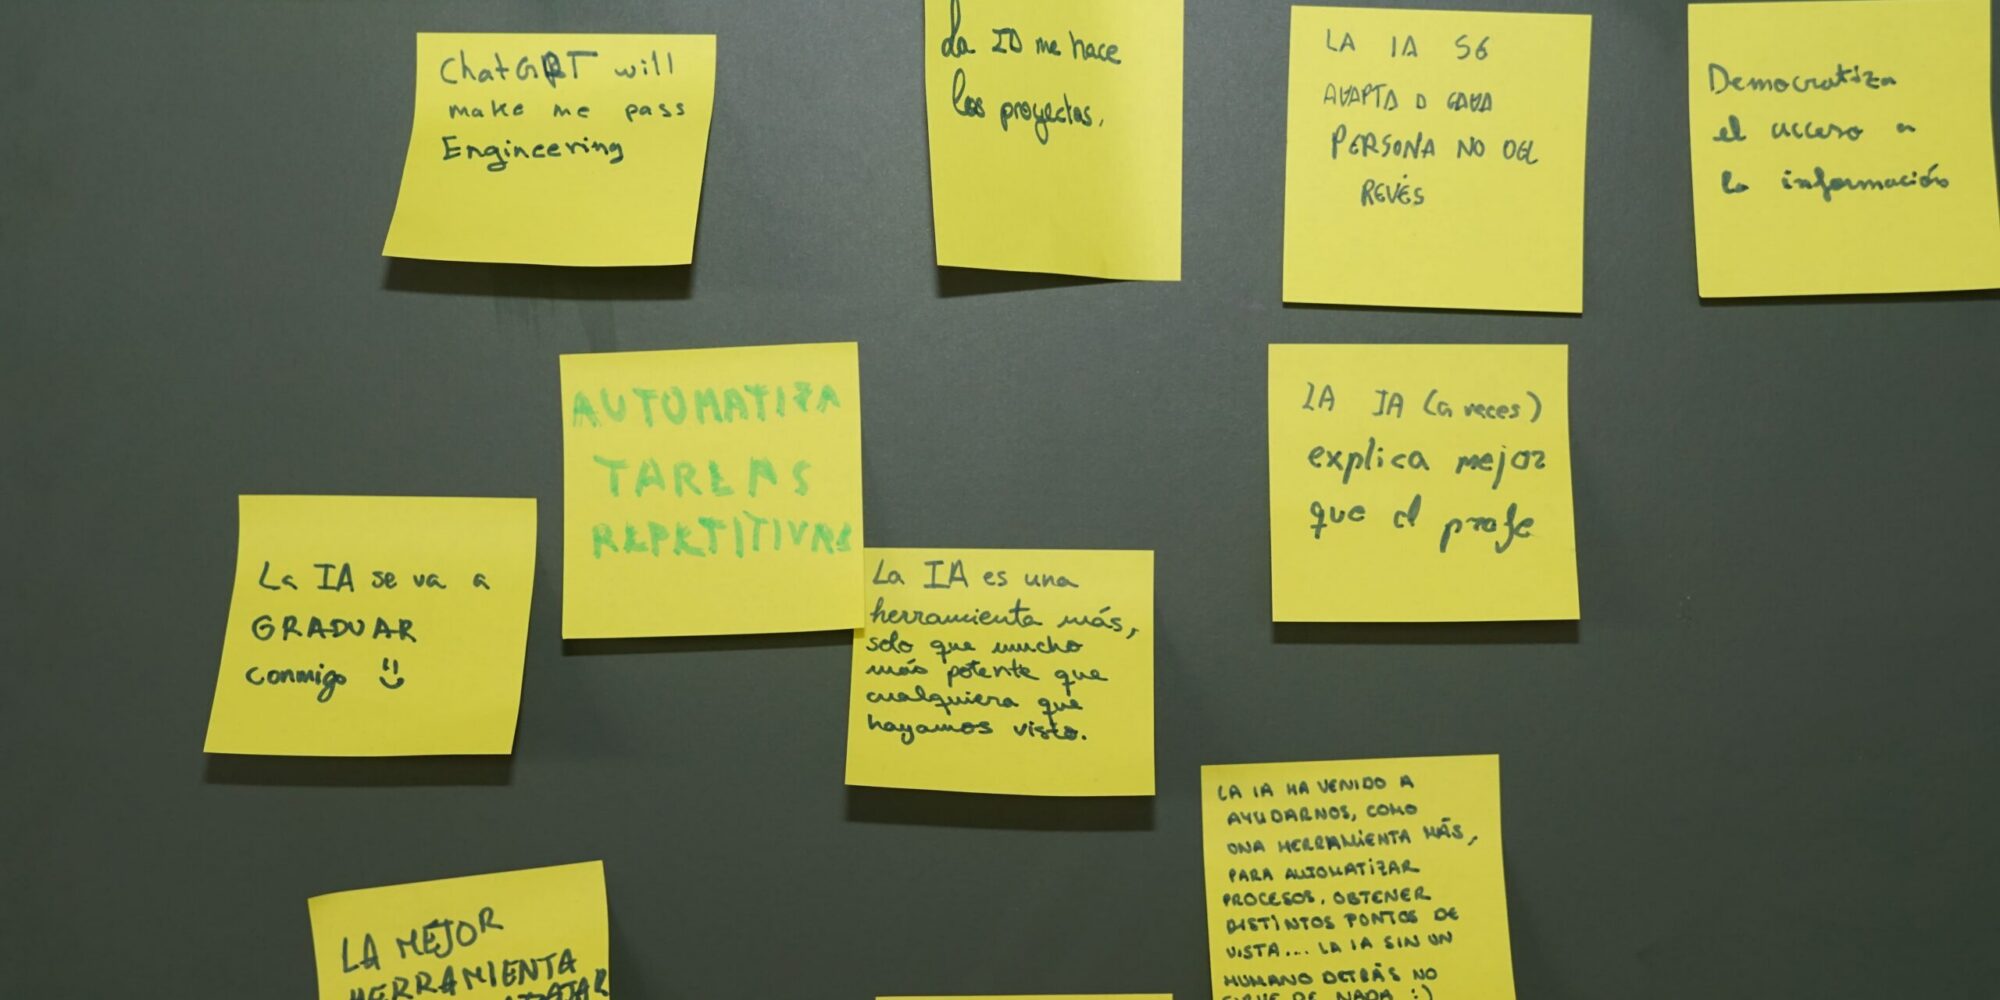 ChatGPT will
make me pass
Engineering
La IA me hace
los proyectos.
LA IA SE
ADAPTA A CADA
PERSONA NO DEL
REVÉS
Democratiza
el acceso a
la información
AUTOMATIZA
TAREAS
REPETITIVAS
LA IA (a veces)
explica mejor
que el profe
La IA se va a
GRADUAR
conmigo :)
La IA es una
herramienta más,
solo que mucho
más potente que
cualquiera que
hayamos visto.
LA IA HA VENIDO A
AYUDARNOS, COMO
UNA HERRAMIENTA MÁS,
PARA AUTOMATIZAR
PROCESOS, OBTENER
DISTINTOS PUNTOS DE
VISTA... LA IA SIN UN
HUMANO DETRÁS NO
SIRVE DE NADA :)
LA MEJOR
HERRAMIENTA